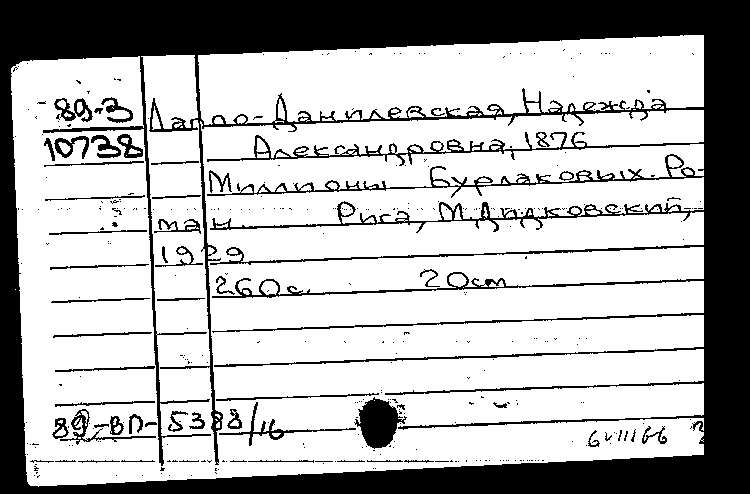 89-3 Лаппо-Данилевская, Надежда
10738 Александровна, 1876
Миллионы Бурлаковых. Ро-
ман. Рига, М. Дидковский,
1929
260с. 20cm
89-ВП-5388/16